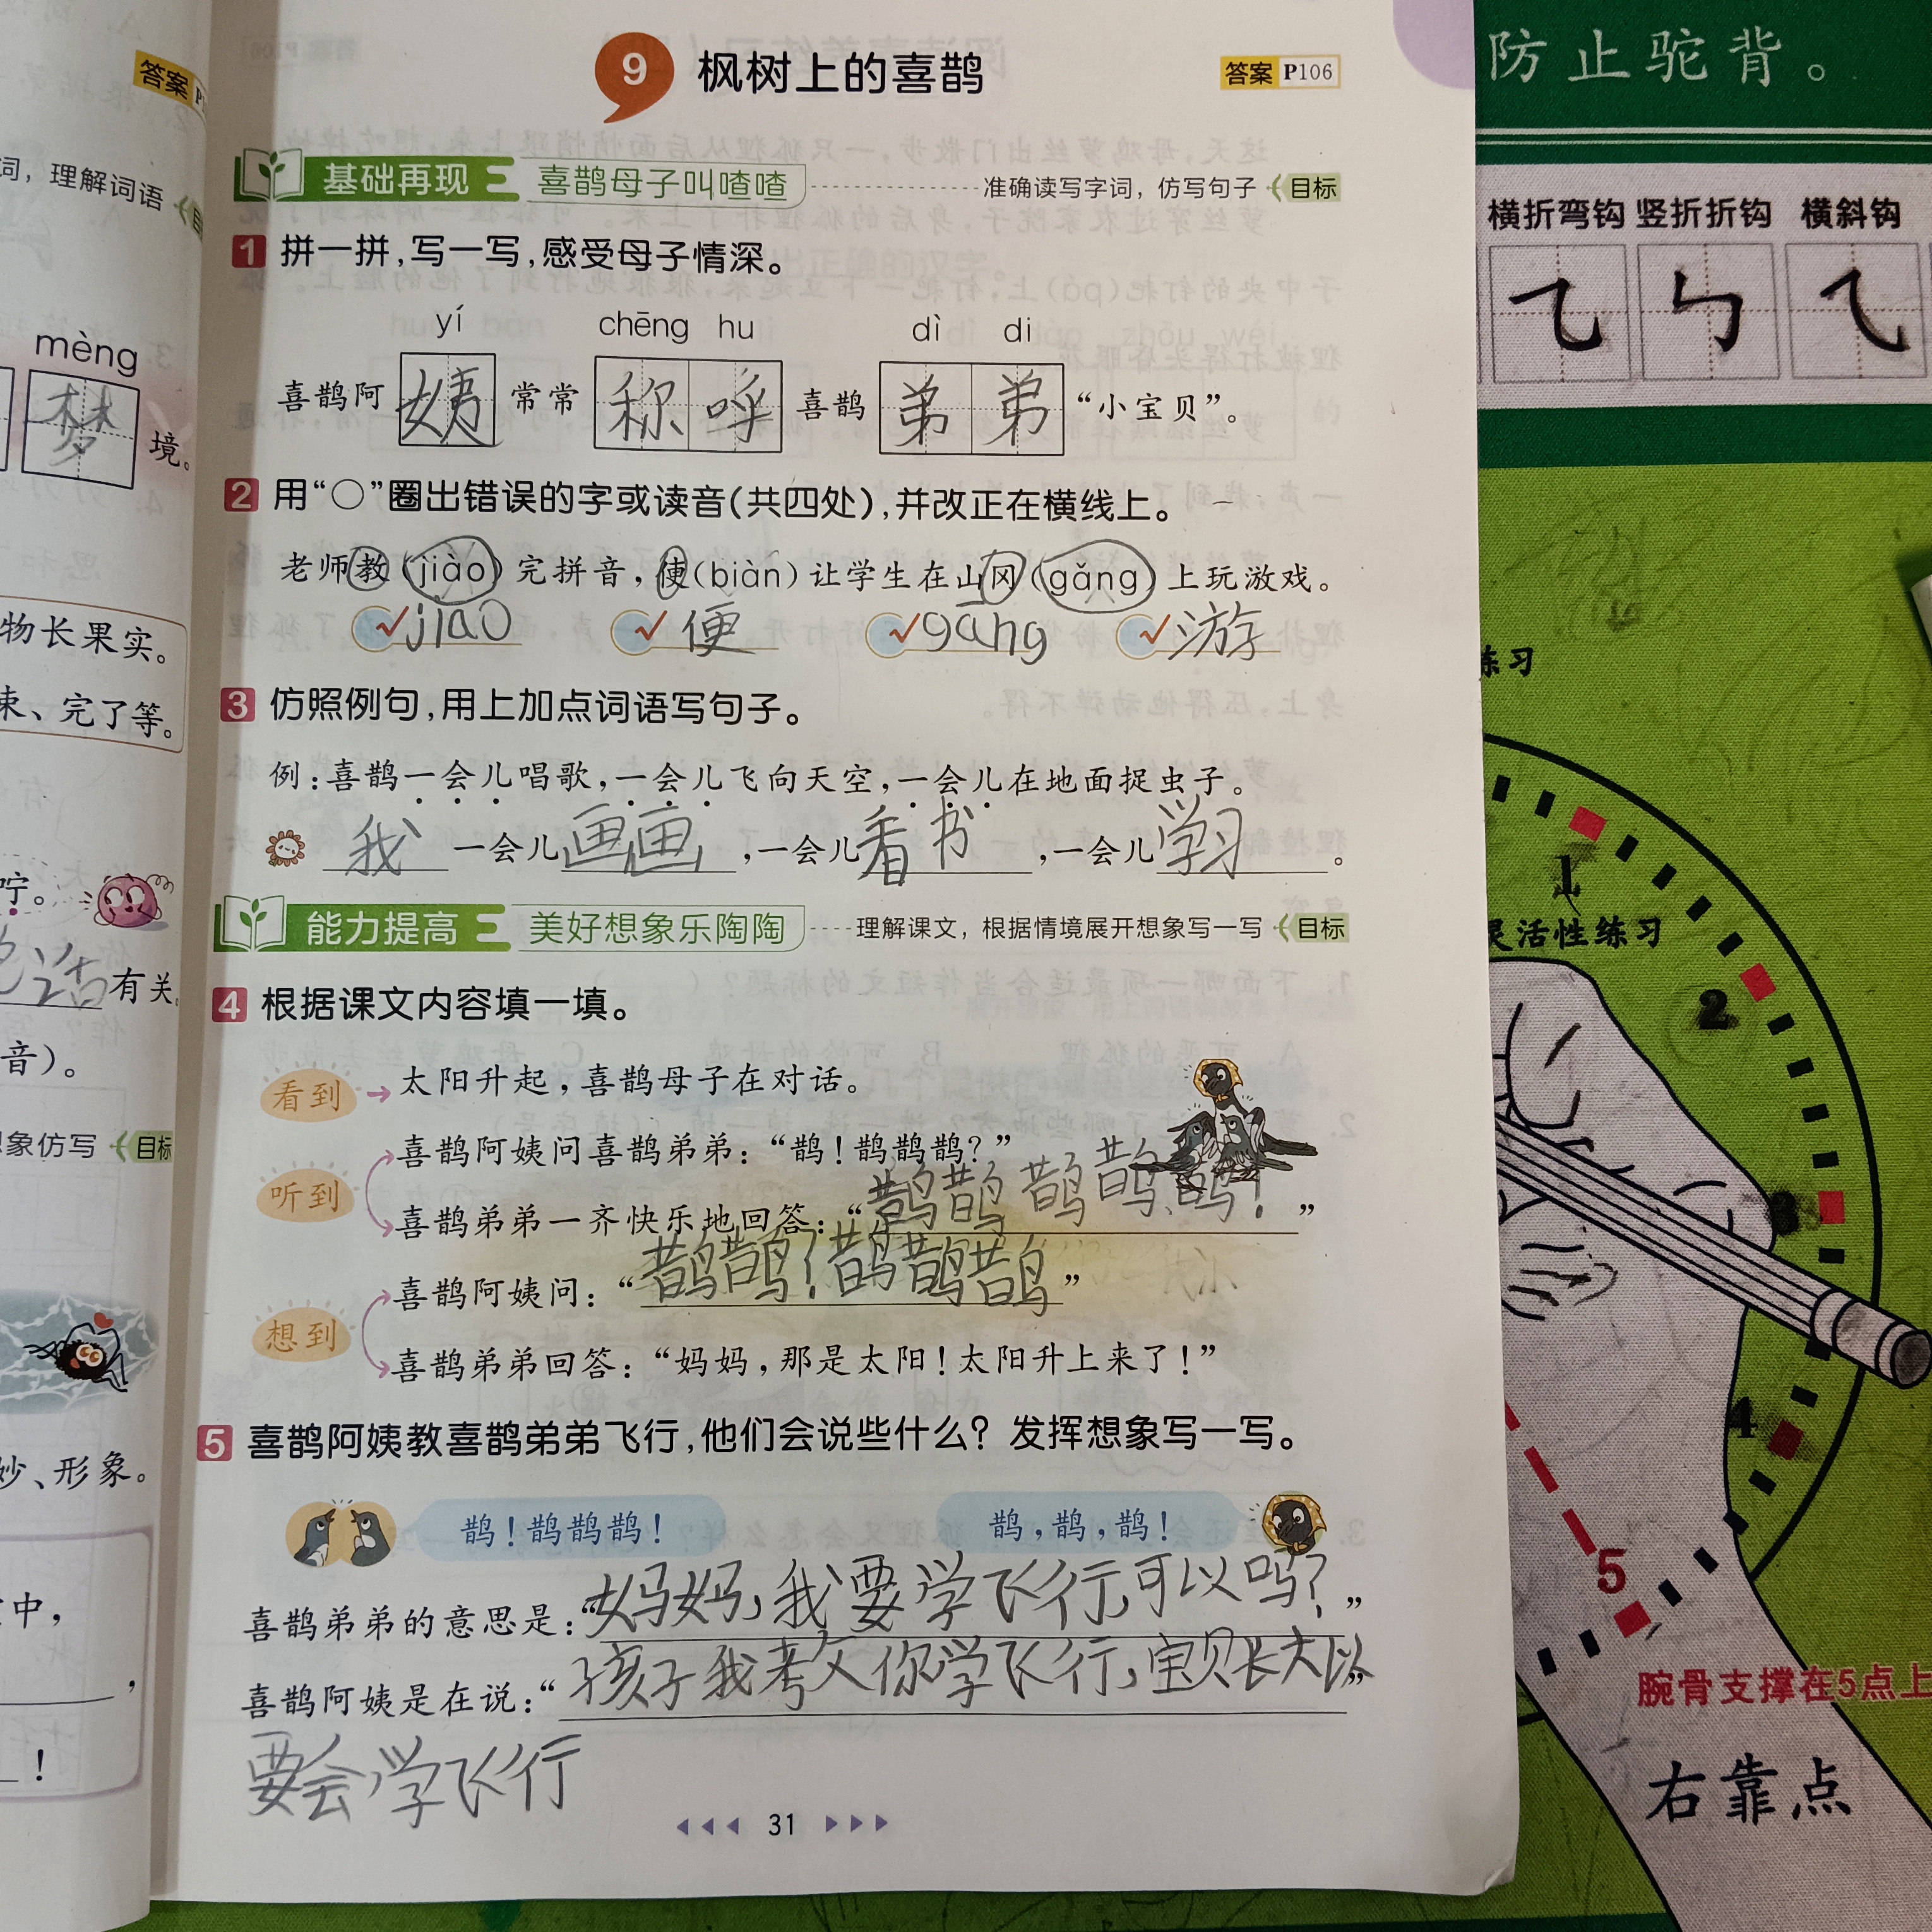 答案 P
词，理解词语
mèng
梦 境。
物长果实。
束、完了等。
咛。
话 有关。
音）。
想象仿写 目标
妙、形象。
中，
，
！
9 枫树上的喜鹊 答案 P106
基础再现 喜鹊母子叫喳喳 准确读写字词，仿写句子 目标
1 拼一拼，写一写，感受母子情深。
yí chēng hu dì di
喜鹊阿 姨 常常 称呼 喜鹊 弟弟 “小宝贝”。
2 用“○”圈出错误的字或读音（共四处），并改正在横线上。
老师教（jiào）完拼音，使（biàn）让学生在山冈（gǎng）上玩游戏。
jiāo 便 gāng 游
3 仿照例句，用上加点词语写句子。
例：喜鹊一会儿唱歌，一会儿飞向天空，一会儿在地面捉虫子。
我 一会儿画画，一会儿看书，一会儿学习。
能力提高 美好想象乐陶陶 理解课文，根据情境展开想象写一写 目标
4 根据课文内容填一填。
看到 太阳升起，喜鹊母子在对话。
喜鹊阿姨问喜鹊弟弟：“鹊！鹊鹊鹊？”
听到
喜鹊弟弟一齐快乐地回答：“鹊鹊鹊鹊鹊！”
喜鹊阿姨问：“鹊鹊！鹊鹊鹊”
想到
喜鹊弟弟回答：“妈妈，那是太阳！太阳升上来了！”
5 喜鹊阿姨教喜鹊弟弟飞行，他们会说些什么？发挥想象写一写。
鹊！鹊鹊鹊！ 鹊，鹊，鹊！
喜鹊弟弟的意思是：“妈妈，我要学飞行，可以吗？”
喜鹊阿姨是在说：“孩子我教你学飞行，宝贝长大以”
要会学飞行
31
防止驼背。
横折弯钩 竖折折钩 横斜钩
练习
灵活性练习
1
2
3
4
5
腕骨支撑在5点上
右靠点